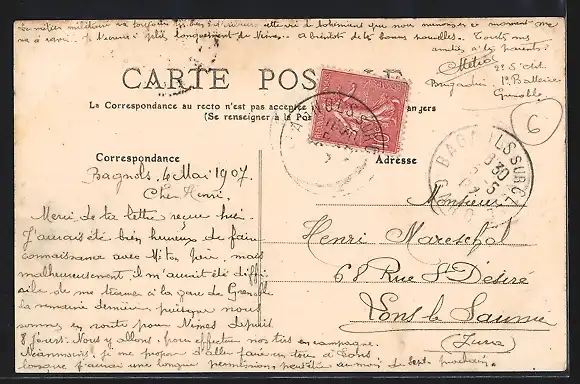 me va à ravir. Je t'écrirai plus longuement de Nîmes. A bientôt de tes bonnes nouvelles. Tous mes
amitiés à tes parents.
2e S'dit
Brigadier, 1e Batterie
Grenoble
6
CARTE POS
La Correspondance au recto n'est pas acceptée angers
(Se renseigner à la Pos
Correspondance
Bagnols, 4 Mai 1907.
Cher Henri,
Merci de ta lettre reçue hier.
J'aurais été bien heureux de faire
connaissance avec M. ton père, mais
malheureusement il m'aurait été diffi-
cile de me trouver à la gare de Grenoble
la semaine dernière puisque nous
sommes en route pour Nîmes depuis
8 jours. Nous y allons pour effectuer nos tirs en campagne.
Néanmoins, je me propose d'aller faire un tour à Lons
lorsque j'aurai une longue permission, peut-être au mois de Sept. prochain.
Adresse
BAGNOLS SUR CÈZE
Monsieur
Henri Mareschal
68 Rue St Désiré
Lons le Saunier
(Jura)